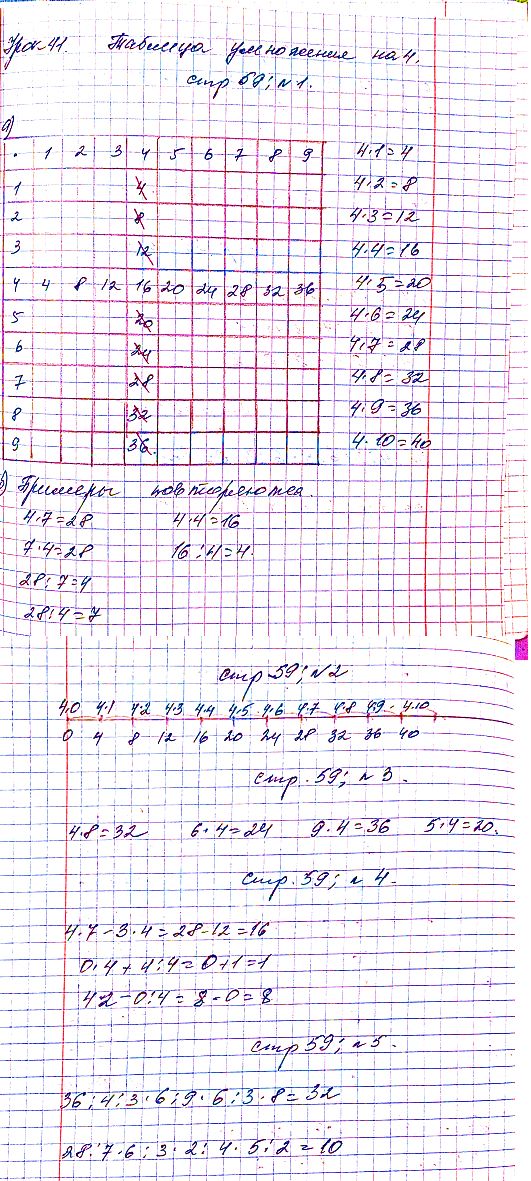 Урок 41. Таблица умножения на 4.
стр 59; №1.
а)
· 1 2 3 4 5 6 7 8 9
1 4
2 8
3 12
4 4 8 12 16 20 24 28 32 36
5 20
6 24
7 28
8 32
9 36
4·1=4
4·2=8
4·3=12
4·4=16
4·5=20
4·6=24
4·7=28
4·8=32
4·9=36
4·10=40
Примеры повторяются
4·7=28 4·4=16
7·4=28 16:4=4.
28:7=4
28:4=7
стр 59; №2
4·0 4·1 4·2 4·3 4·4 4·5 4·6 4·7 4·8 4·9 4·10
0 4 8 12 16 20 24 28 32 36 40
стр. 59; №3.
4·8=32 6·4=24 9·4=36 5·4=20.
стр. 59; №4.
4·7-3·4=28-12=16
0·4+4:4=0+1=1
4·2-0:4=8-0=8
стр 59; №5.
36:4:3·6:9·6:3·8=32
28:7·6:3·2:4·5:2=10